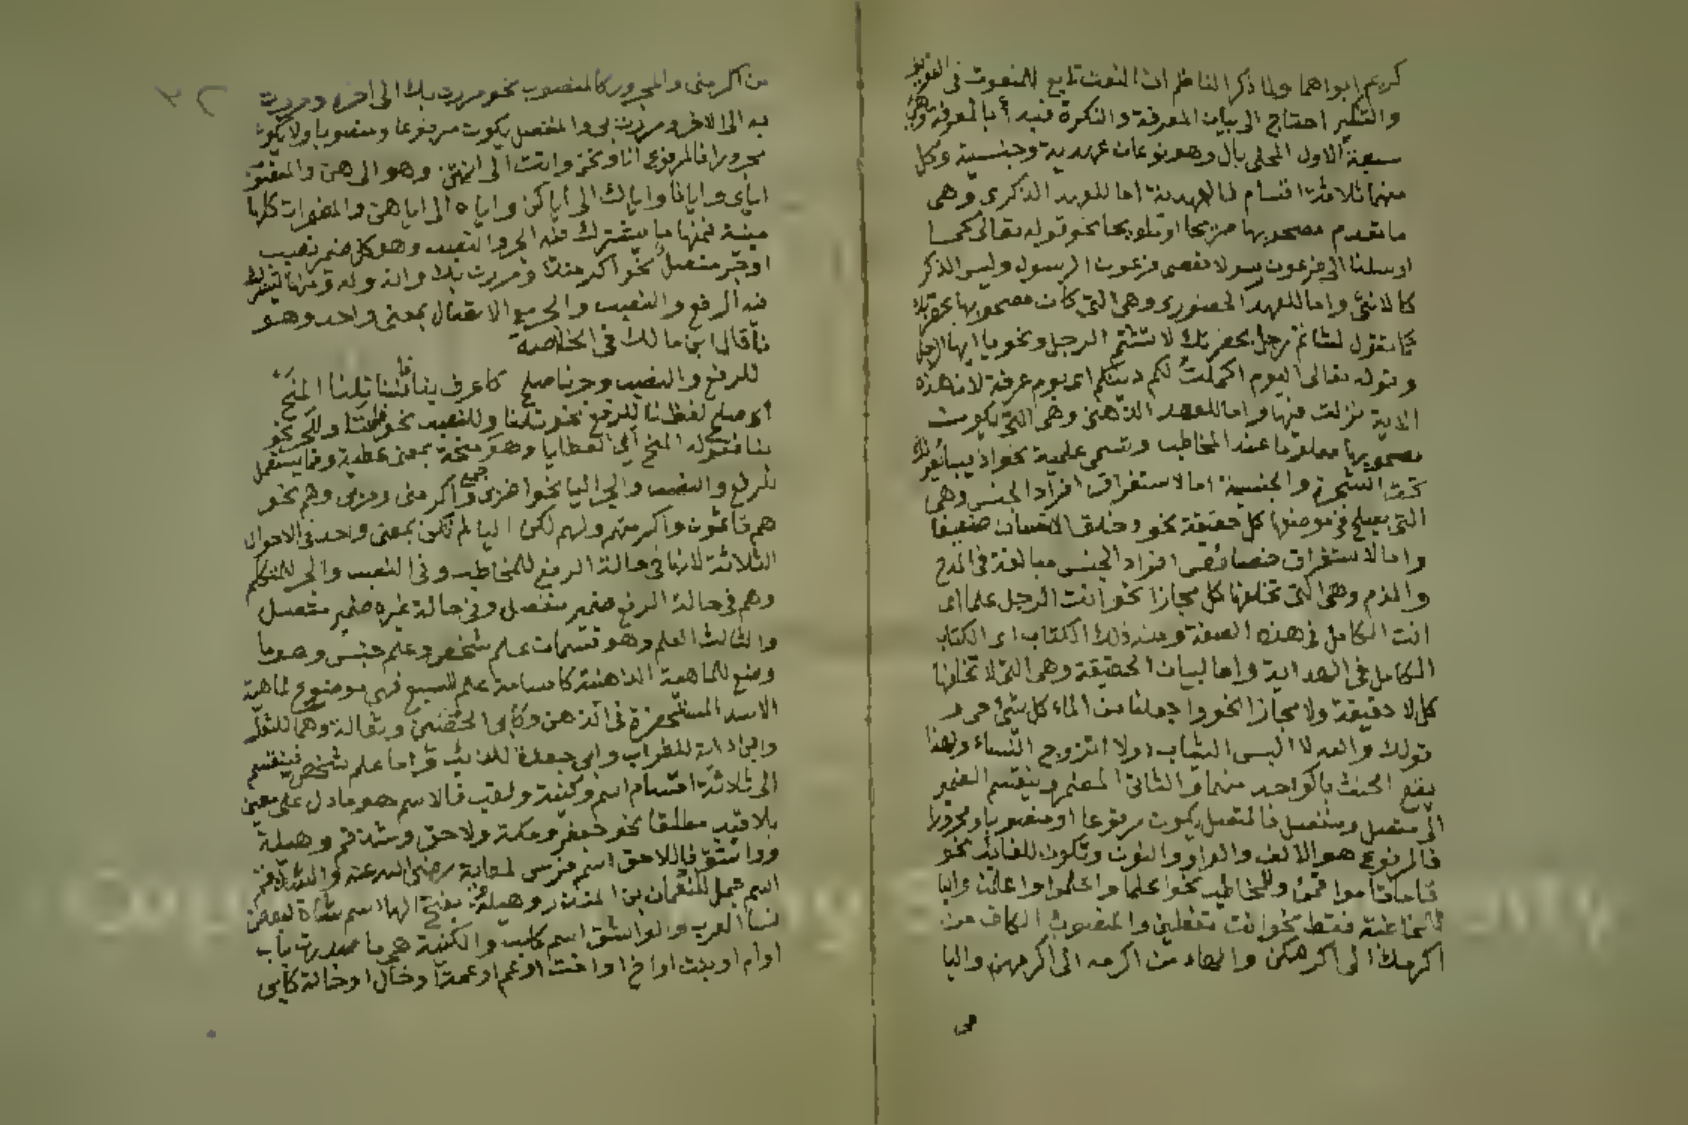 كريم ابواهما ولما ذكر الناظم ان النعت تابع للمنعوت فى التعريف
والتنكير احتاج الى بيان المعرفة والنكرة فبدأ بالمعرفة وهى
سبعة الاول المحلى بال وهو نوعان عهدية وجنسية وكل
منهما ثلاثة اقسام فالعهدية اما للعهد الذكرى وهى
ما تقدم مصحوبها صريحا او تلويحا نحو قوله تعالى كما
ارسلنا الى فرعون رسولا فعصى فرعون الرسول وليس الذكر
كالانثى واما للعهد الحضورى وهى التى كان مصحوبها بحضرتك
كما تقول لشاتم رجل بحضرتك لا تشتم الرجل ونحو يا ايها الرجل
وقوله تعالى اليوم اكملت لكم دينكم اى يوم عرفة لان هذه
الاية نزلت فيها واما للعهد الذهنى وهى التى يكون
مصحوبها معلوما عند المخاطب وتسمى علمية نحو اذ يبايعونك
تحت الشجرة والجنسية اما لاستغراق افراد الجنس وهى
التى يصلح فى موضعها كل حقيقة نحو وخلق الانسان ضعيفا
واما لاستغراق خصائص افراد الجنس مبالغة فى المدح
والذم وهى التى تخلفها كل مجازا نحو انت الرجل علما اى
انت الكامل فى هذه الصفة ومنه ذلك الكتاب اى الكتاب
الكامل فى الهداية واما لبيان الحقيقة وهى التى لا تخلفها
كل لا حقيقة ولا مجازا نحو وجعلنا من الماء كل شئ حى و
قولك والله لا البس الثياب ولا اتزوج النساء ولهذا
يقع الحنث بالواحد منهما والثانى المضمر وينقسم الضمير
الى متصل ومنفصل فالمتصل يكون مرفوعا او منصوبا ومجرورا
فالمرفوع هو الالف والواو والنون وتكون للغايب نحو
قاما قاموا قمن وللمخاطب نحو اعلما واعلموا واعلمن واليا
للمخاطبة فقط نحو انت تفعلين والمنصوب الكاف من
اكرمك الى اكرمكن والهاء من اكرمه الى اكرمهن واليا
من اكرمنى والمجرور كالمنصوب نحو مررت بك الى اخره ومررت
به الى الاخر ومررت بى والمنفصل يكون مرفوعا ومنصوبا ولا يكون
مجرورا فالمرفوع انا ونحن وانت الى انتن وهو الى هن والمنصوب
اياى وايانا واياك الى اياكن واياه الى اياهن والمضمرات كلها
مبنية فمنها ما يشترك فيه الجر والنصب وهو كل ضمير نصب
او جر متصل نحو اكرمتك ومررت بك وانه وله ومنها ما يشترك
فيه الرفع والنصب والجر مع الاتصال بمعنى واحد وهو
نا قال ابن مالك فى الخلاصة
للرفع والنصب وجر نا صلح كاعرف بنا فاننا نلنا المنح
اى صلح لفظ نا للرفع نحو نلنا وللنصب نحو فاننا وللجر نحو
بنا فقوله المنح اى العطايا وهو جمع منحة بمعنى عطية وما يستعمل
للرفع والنصب والجر اليا نحو اضربى واكرمنى ومر بى وهم نحو
هم قائمون واكرمتهم ولهم لكن اليا لم تكن بمعنى واحد فى الاحوال
الثلاثة لانها فى حالة الرفع للمخاطب وفى النصب والجر للمتكلم
وهم فى حالة الرفع ضمير منفصل وفى حالة غيره ضمير متصل
والثالث العلم وهو قسمان علم شخص وعلم جنس وهو ما
وضع للماهية الذهنية كاسامة علم للسبع فهى موضوع لماهية
الاسد المستحضرة فى الذهن وكأبى الحصين وثعالة وهما للثعلب
وابن داية للغراب وابى جعدة للذئب واما علم شخص فينقسم
الى ثلاثة اقسام اسم وكنية ولقب فالاسم هو ما دل على معين
بلا قيد مطلقا نحو جعفر ومكة ولاحق وشذقم وهيلة
وواشق فاللاحق اسم فرس لمعاوية رضى الله عنه والشذقم
اسم جمل للنعمان بن المنذر وهيلة بفتح الها اسم شاة لبعض
نسا العرب والواشق اسم كلب والكنية هو ما صدرت باب
او ام او بنت او اخ او اخت او عم او عمة او خال او خالة كابى